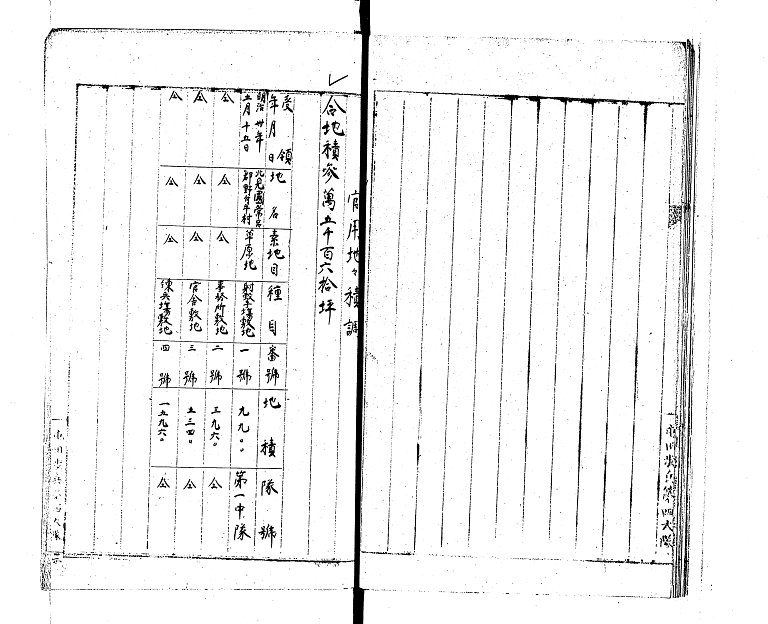 屯田歩兵第四大隊
官用地々積調
合地積参萬五千百六拾坪
受領年月日 地名 素地目 種目 番號 地積 隊號
明治卅年五月十五日 北見國常呂郡野付牛村 草原地 射撃場敷地 一號 九九〇〇 第一中隊
仝 仝 仝 事務所敷地 二號 三九六〇 仝
仝 仝 仝 官舎敷地 三號 五三四〇 仝
仝 仝 仝 練兵場敷地 四號 一五九六〇 仝
屯田歩兵第四大隊